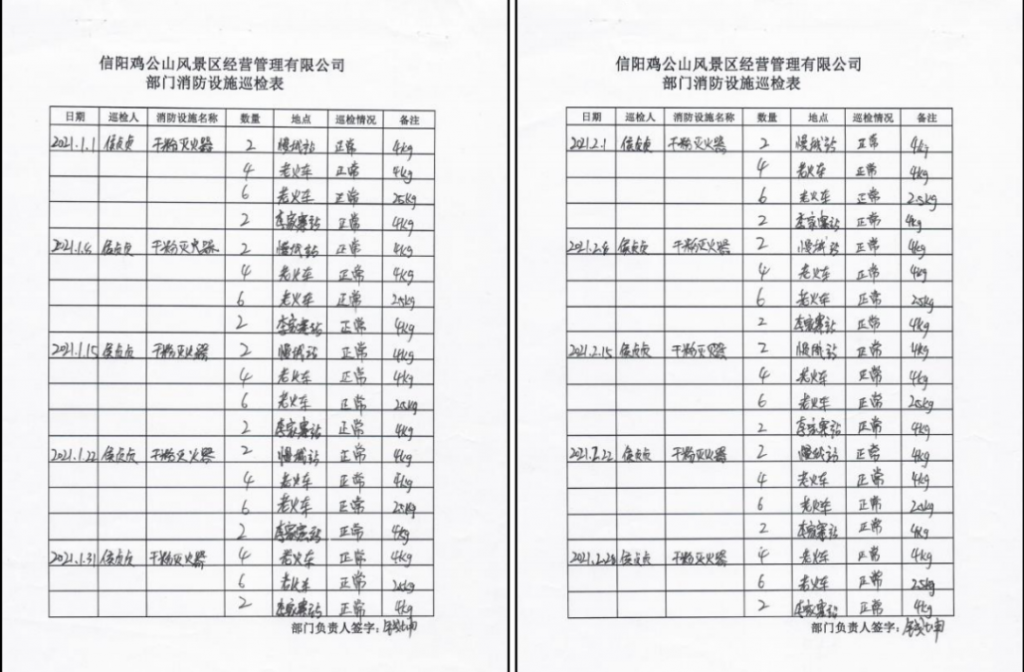 信阳鸡公山风景区经营管理有限公司
部门消防设施巡检表
日期 巡检人 消防设施名称 数量 地点 巡检情况 备注
2021.1.1 干粉灭火器 2 正常 4kg
4 老火车 正常 4kg
6 老火车 正常 25kg
2 李家寨站 正常 4kg
2021.1.8 干粉灭火器 2 正常 4kg
4 老火车 正常 4kg
6 老火车 正常 25kg
2 李家寨站 正常 4kg
2021.1.15 干粉灭火器 2 正常 4kg
4 老火车 正常 4kg
6 老火车 正常 25kg
2 李家寨站 正常 4kg
2021.1.22 干粉灭火器 2 正常 4kg
4 老火车 正常 4kg
6 老火车 正常 25kg
2 李家寨站 正常 4kg
2021.1.31 干粉灭火器 4 老火车 正常 4kg
6 老火车 正常 25kg
2 李家寨站 正常 4kg
部门负责人签字:
信阳鸡公山风景区经营管理有限公司
部门消防设施巡检表
日期 巡检人 消防设施名称 数量 地点 巡检情况 备注
2021.2.1 干粉灭火器 2 正常 4kg
4 老火车 正常 4kg
6 老火车 正常 25kg
2 李家寨站 正常 4kg
2021.2.8 干粉灭火器 2 正常 4kg
4 老火车 正常 4kg
6 老火车 正常 25kg
2 李家寨站 正常 4kg
2021.2.15 干粉灭火器 2 正常 4kg
4 老火车 正常 4kg
6 老火车 正常 25kg
2 李家寨站 正常 4kg
2021.2.22 干粉灭火器 2 正常 4kg
4 老火车 正常 4kg
6 老火车 正常 25kg
2 李家寨站 正常 4kg
2021.2.28 干粉灭火器 4 老火车 正常 4kg
6 老火车 正常 25kg
2 李家寨站 正常 4kg
部门负责人签字: